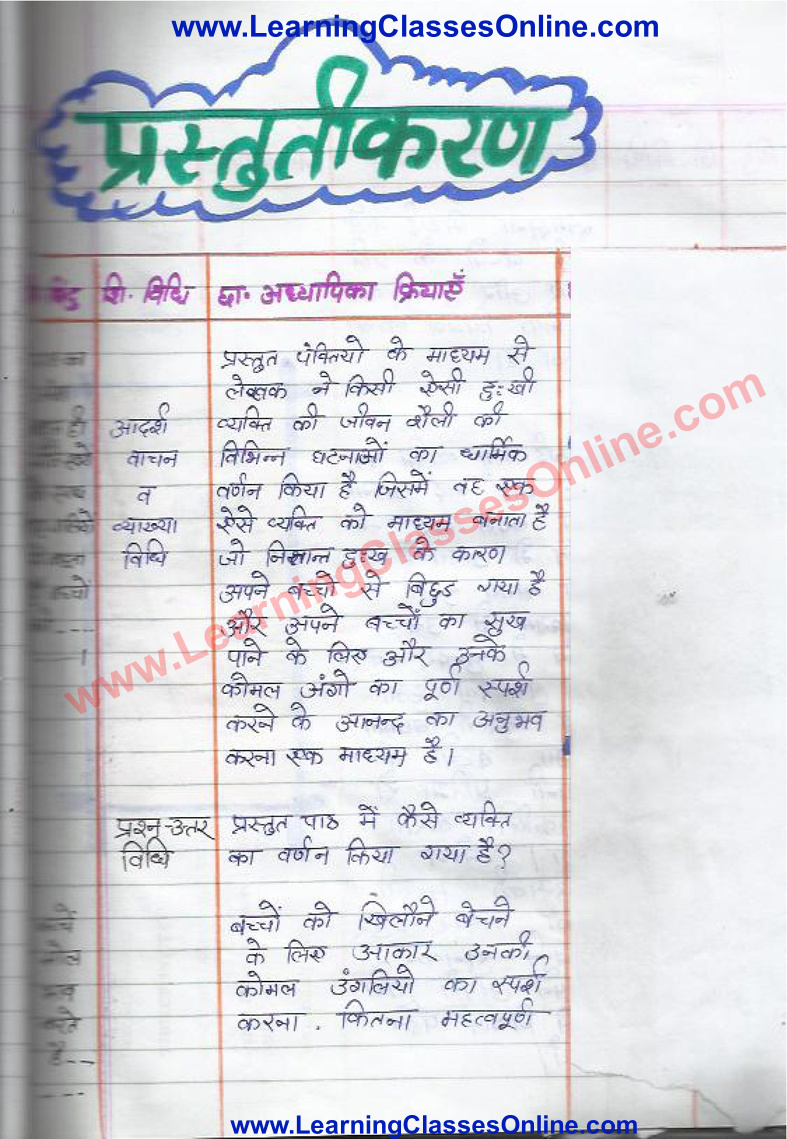 www.LearningClassesOnline.com
प्रस्तुतीकरण
शि. विधि छा. अध्यापिका क्रियाएँ
प्रस्तुत पंक्तियो के माध्यम से
लेखक ने किसी ऐसी दुःखी
आदर्श व्यक्ति की जीवन शैली की
वाचन विभिन्न घटनाओं का धार्मिक
व वर्णन किया है जिसमें वह एक
व्याख्या ऐसे व्यक्ति को माध्यम बनाता है
विधि जो दुःख के कारण
अपने बच्चो से बिछुड गया है
और अपने बच्चों का सुख
पाने के लिए और उनके
कोमल अंगो का पूर्ण स्पर्श
करने के आनन्द का अनुभव
करना एक माध्यम है।
प्रश्न-उत्तर प्रस्तुत पाठ में कैसे व्यक्ति
विधि का वर्णन किया गया है?
बच्चों को खिलौने बेचने
के लिए आकार उनकी
कोमल उंगलियो का स्पर्श
करते करना . कितना महत्वपूर्ण
है---
www.LearningClassesOnline.com
www.LearningClassesOnline.com